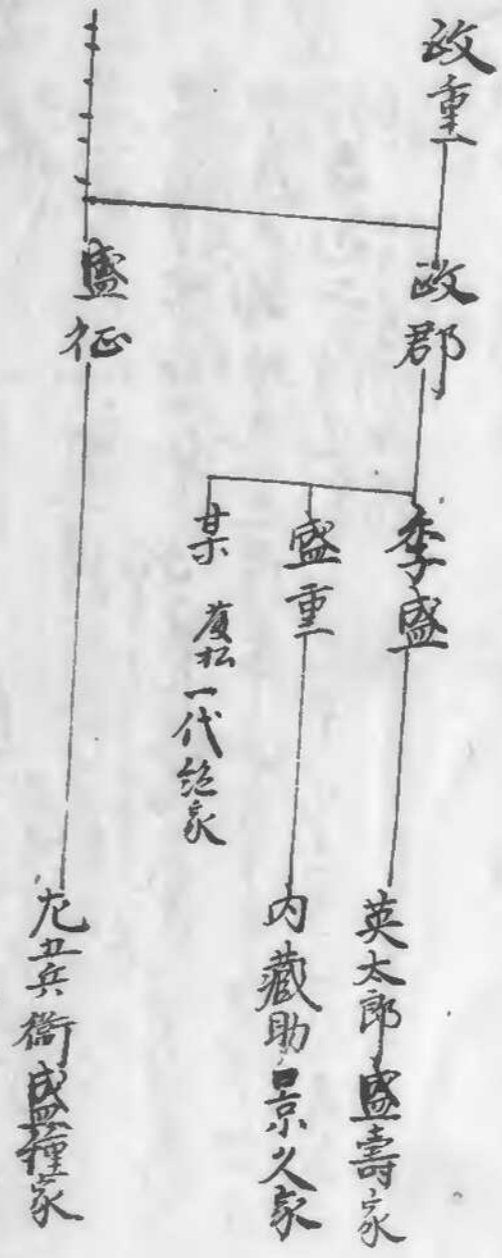 政重
政郡
季盛
英太郎盛壽家
盛重
内藏助景久家
某
一代絶家
盛征
兵衞盛種家